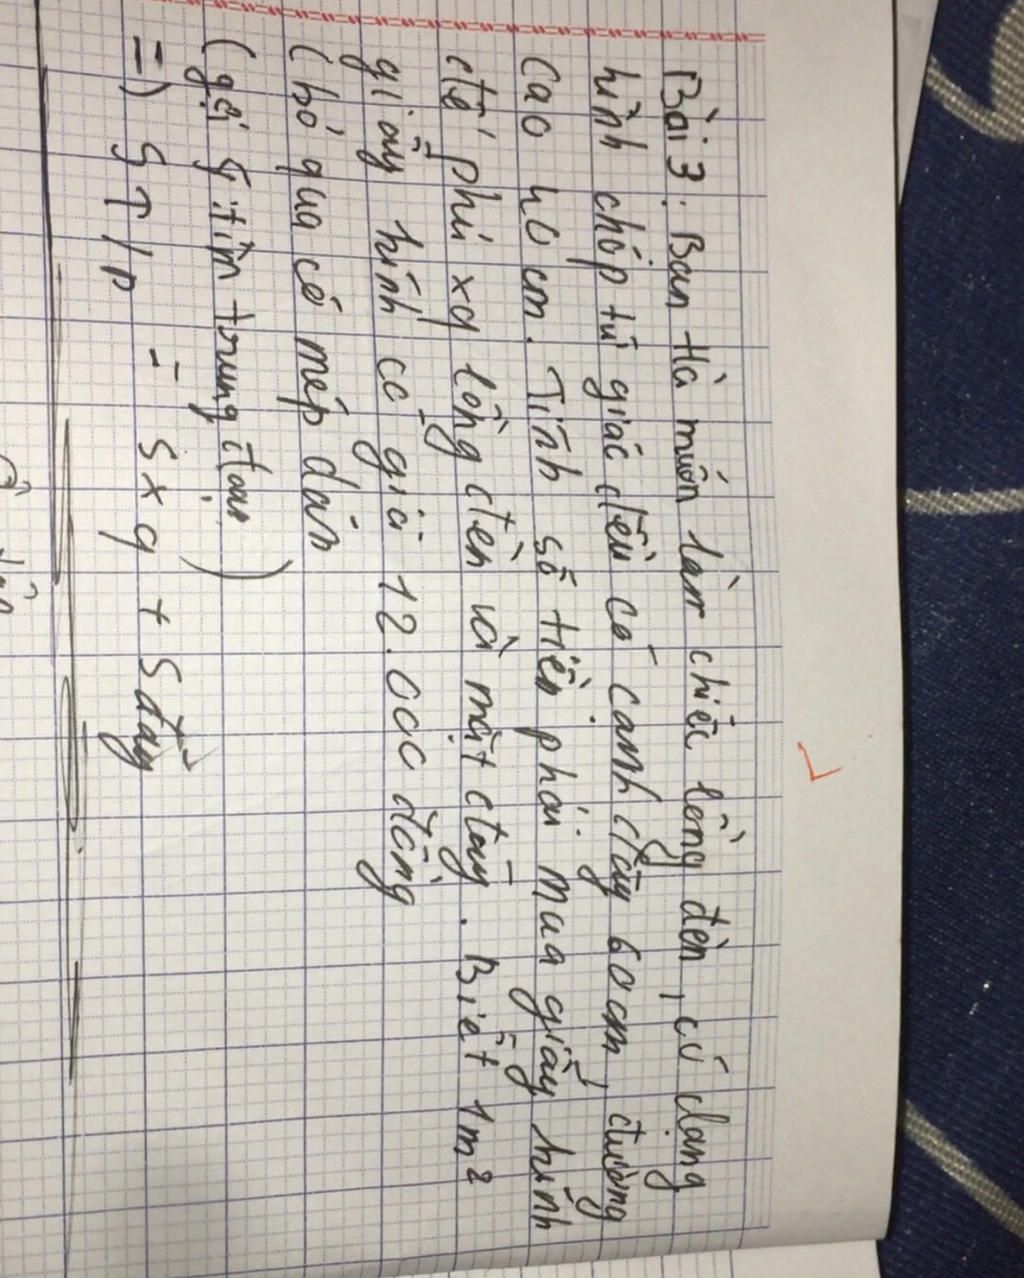 Bài 3: Bạn Hà muốn làm chiếc lồng đèn, có dạng
hình chóp tứ giác đều có cạnh đáy 60 cm, đường
cao 40 cm. Tính số tiền phải mua giấy kính
để phủ xq lồng đèn và mặt đáy. Biết 1m²
giấy kính có giá 12.000 đồng
(bỏ qua các mép dán
(gợi ý tìm trung đoạn)
=) STp = Sxq + Sđáy